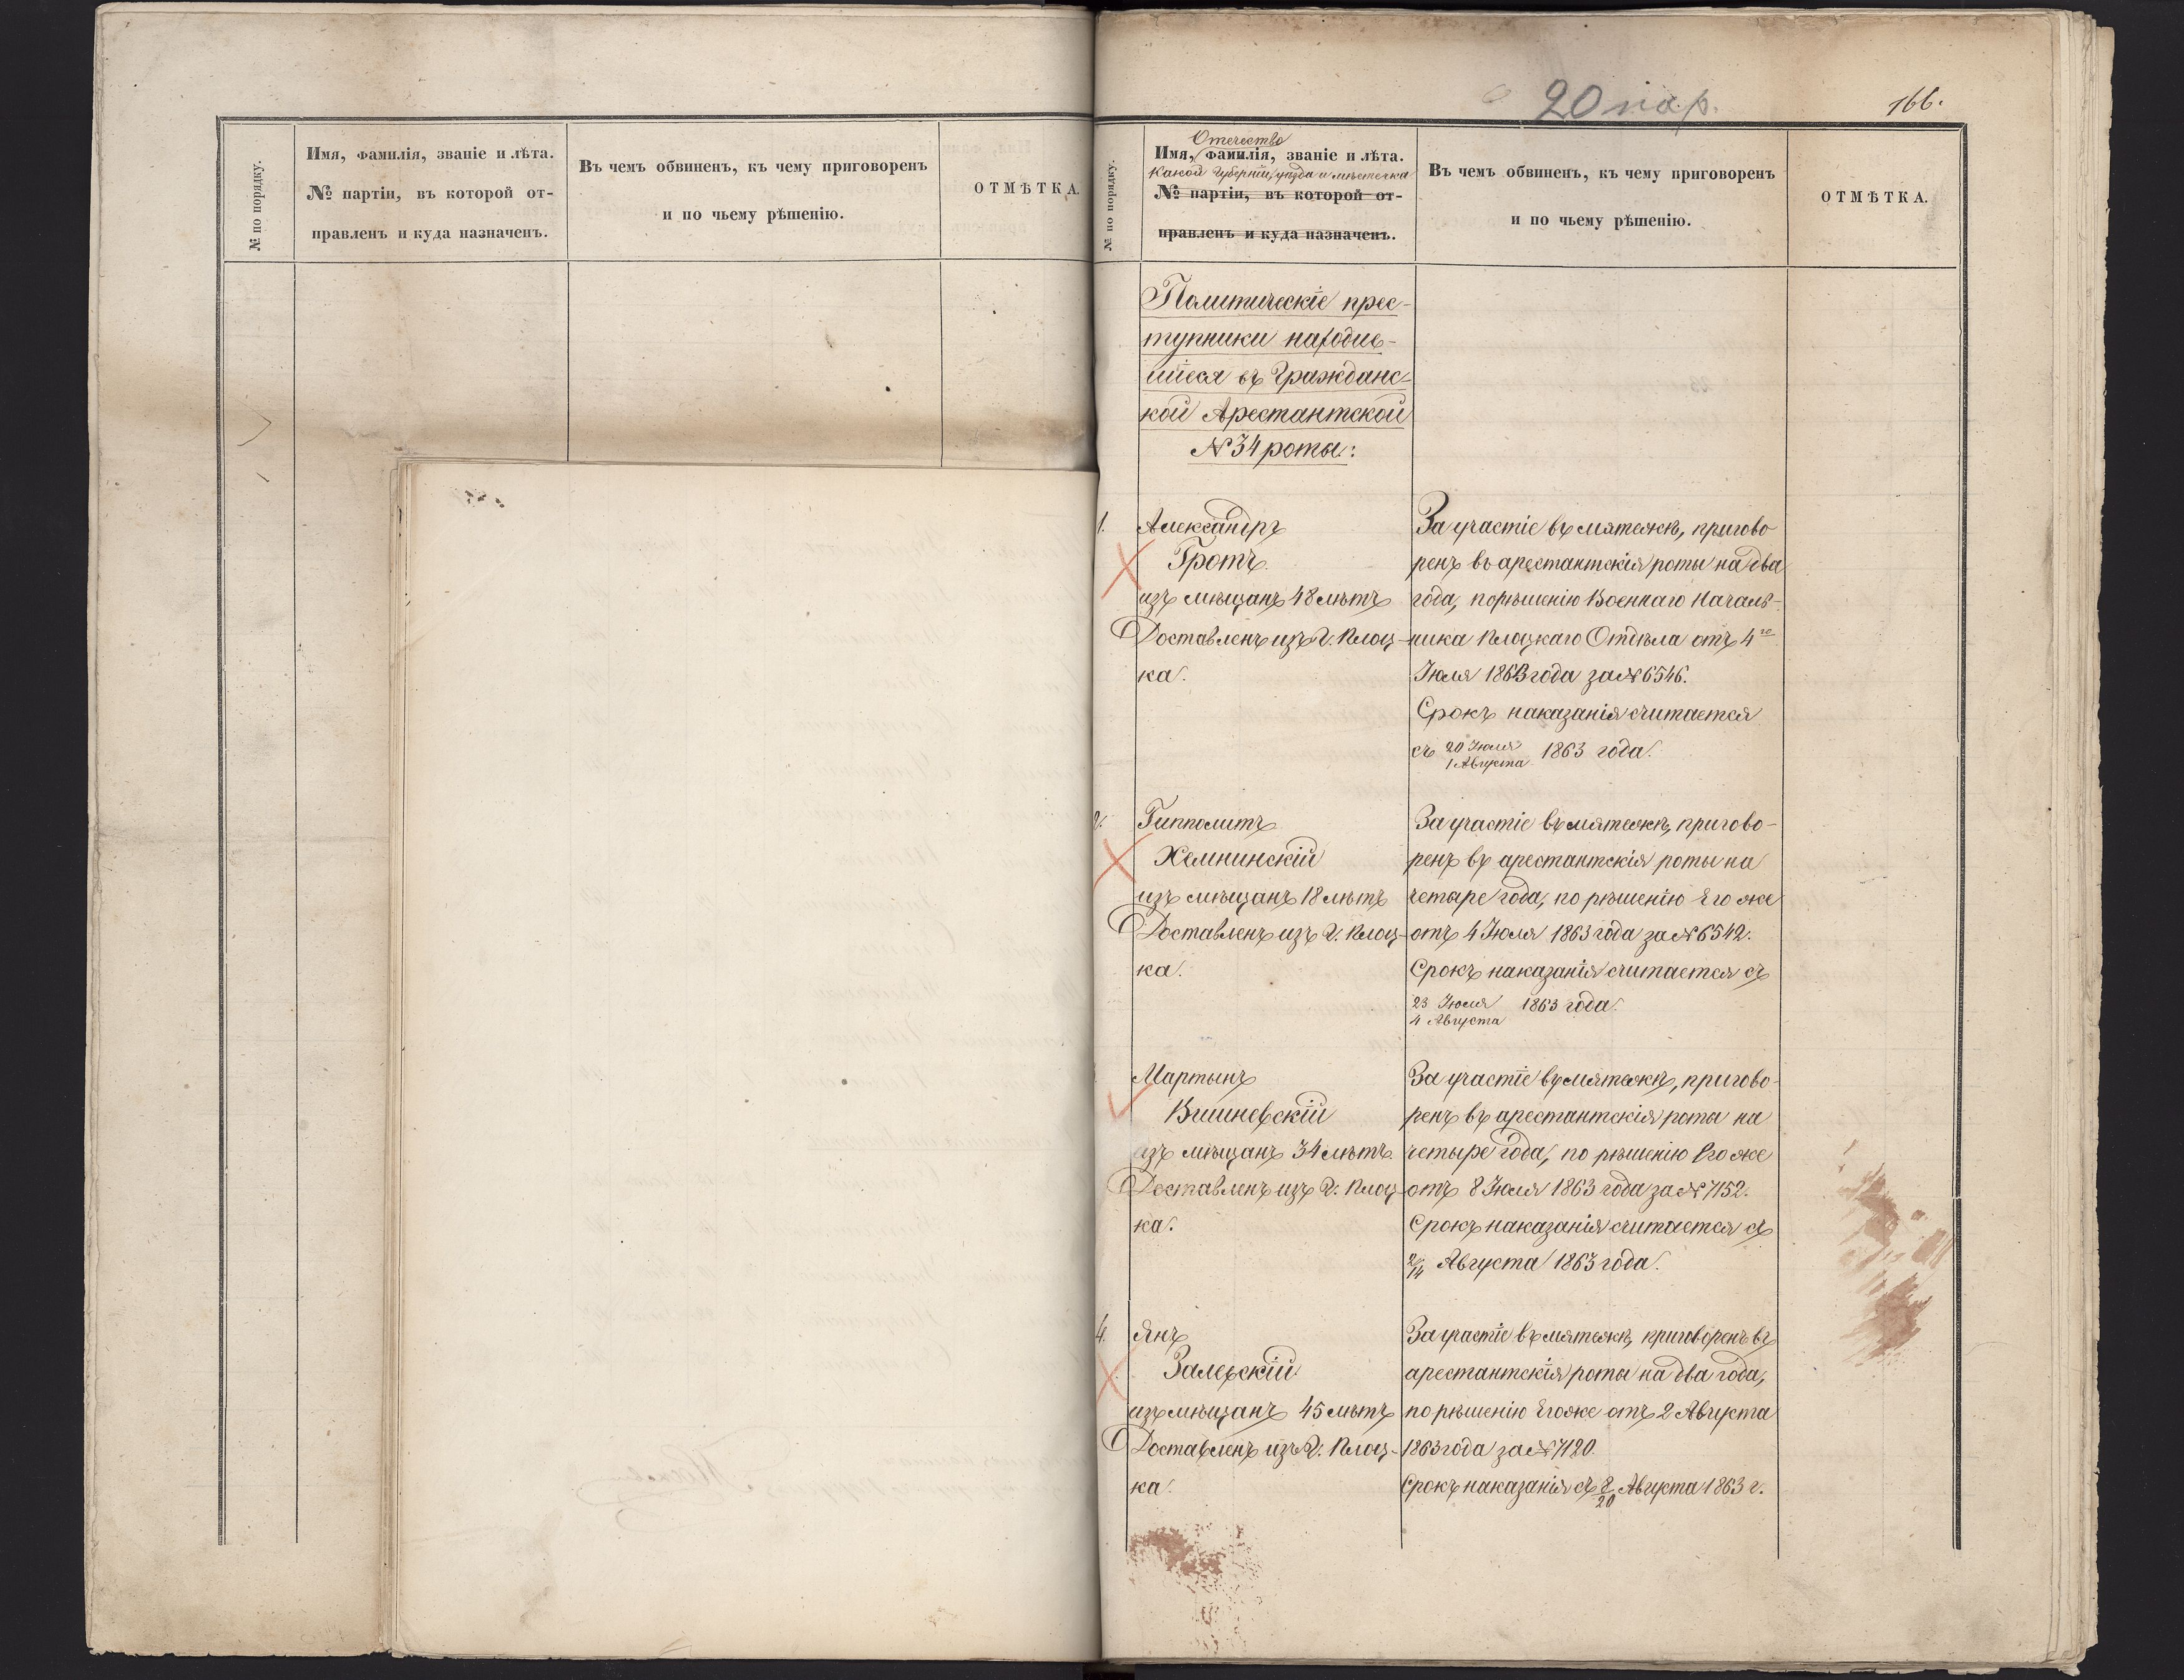 № по порядку.
Имя, фамилія, званіе и лѣта.
№ партіи, въ которой от-
правленъ и куда назначенъ.
Въ чемъ обвиненъ, къ чему приговоренъ
и по чьему рѣшенію.
ОТМѢТКА.
20 пар.
166.
№ по порядку.
Отечество
Имя, фамилія, званіе и лѣта.
Какой Губерніи, уѣзда и мѣстечка
№ партіи, въ которой от-
правленъ и куда назначенъ.
Въ чемъ обвиненъ, къ чему приговоренъ
и по чьему рѣшенію.
ОТМѢТКА.
Политическіе прес-
тупники находив-
шіеся въ Гражданс-
кой Арестантской
№ 34 роты:
1.
Александръ
Гротъ
изъ мѣщанъ 48 лѣтъ
Доставленъ изъ г. Плоц-
ка.
За участіе въ мятежѣ, пригово
ренъ въ арестантскія роты на два
года, по рѣшенію Военнаго Началь-
ника Плоцкаго Отдѣла отъ 4го
Іюля 1863 года за № 6546.
Срокъ наказанія считается
съ 20 Іюля
1 Августа 1863 года.
2.
Гипполитъ
Хемнинскій
изъ мѣщанъ 18 лѣтъ
Доставленъ изъ г. Плоц-
ка.
За участіе въ мятежѣ, пригово-
ренъ въ арестантскія роты на
четыре года, по рѣшенію Его же
отъ 4 Іюля 1863 года за № 6542.
Срокъ наказанія считается съ
23 Іюля 1863 года.
4 Августа
Мартынъ
Вишневскій
изъ мѣщанъ 34 лѣтъ
Доставленъ изъ г. Плоц-
ка.
За участіе въ мятежѣ, пригово-
ренъ въ арестантскія роты на
четыре года, по рѣшенію Его же
отъ 8 Іюля 1863 года за № 7152.
Срокъ наказанія считается съ
2/14 Августа 1863 года.
4.
Янъ
Залевскій
изъ мѣщанъ 45 лѣтъ
Доставленъ изъ г. Плоц-
ка.
За участіе въ мятежѣ, приговоренъ въ
арестантскія роты на два года,
по рѣшенію Его же отъ 2 Августа
1863 года за № 7120.
Срокъ наказанія съ 8/20 Августа 1863 г.